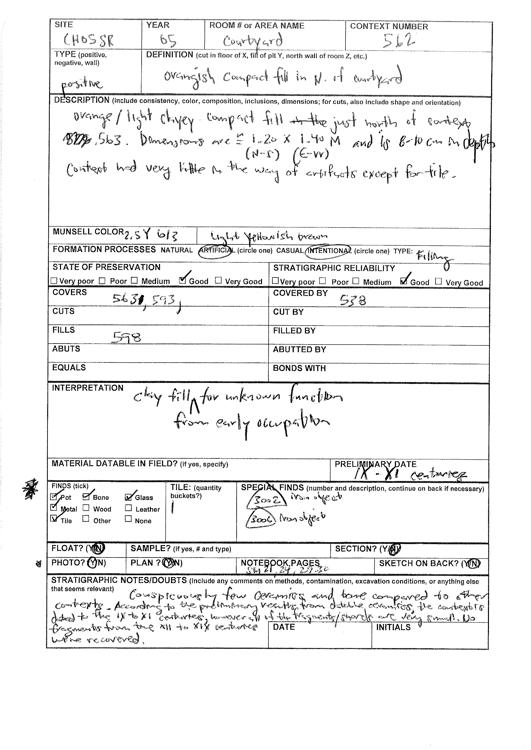 SITE YEAR ROOM # or AREA NAME CONTEXT NUMBER
CHOSSR 05 Courtyard 562
TYPE (positive, negative, wall) DEFINITION (cut in floor of X, fill of pit Y, north wall of room Z, etc.)
positive orangish compact fill in N. of courtyard
DESCRIPTION (include consistency, color, composition, inclusions, dimensions; for cuts, also include shape and orientation)
orange/light clayey compact fill just north of contexts
563. Dimensions are ≈ 1.20 x 1.40 M and is 8-10 cm in depth
(N-S) (E-W)
Context had very little in the way of artifacts except for tile.
MUNSELL COLOR 2.5Y 6/3 light yellowish brown
FORMATION PROCESSES NATURAL / ARTIFICIAL (circle one) CASUAL / INTENTIONAL (circle one) TYPE: Filling
STATE OF PRESERVATION STRATIGRAPHIC RELIABILITY
Very poor Poor Medium Good Very Good Very poor Poor Medium Good Very Good
COVERS 563, 593, COVERED BY 538
CUTS CUT BY
FILLS 598 FILLED BY
ABUTS ABUTTED BY
EQUALS BONDS WITH
INTERPRETATION clay fill for unknown function
from early occupation
MATERIAL DATABLE IN FIELD? (if yes, specify) PRELIMINARY DATE
IX - XI centuries
FINDS (tick) TILE: (quantity buckets?) SPECIAL FINDS (number and description, continue on back if necessary)
Pot Bone Glass 1 3002 iron object
Metal Wood Leather
Tile Other None 3006 iron object
FLOAT? (Y/N) SAMPLE? (if yes, # and type) SECTION? (Y/N)
PHOTO? (Y/N) PLAN? (Y/N) NOTEBOOK PAGES SKETCH ON BACK? (Y/N)
STRATIGRAPHIC NOTES/DOUBTS (include any comments on methods, contamination, excavation conditions, or anything else that seems relevant)
Conspicuously few ceramics and bone compared to other
contexts. According to the preliminary results from datable ceramics, the context is
dated to the IX to XI centuries, however all of the fragments/sherds are very small. No
fragments from the XII to XIX centuries
were recovered.
DATE INITIALS